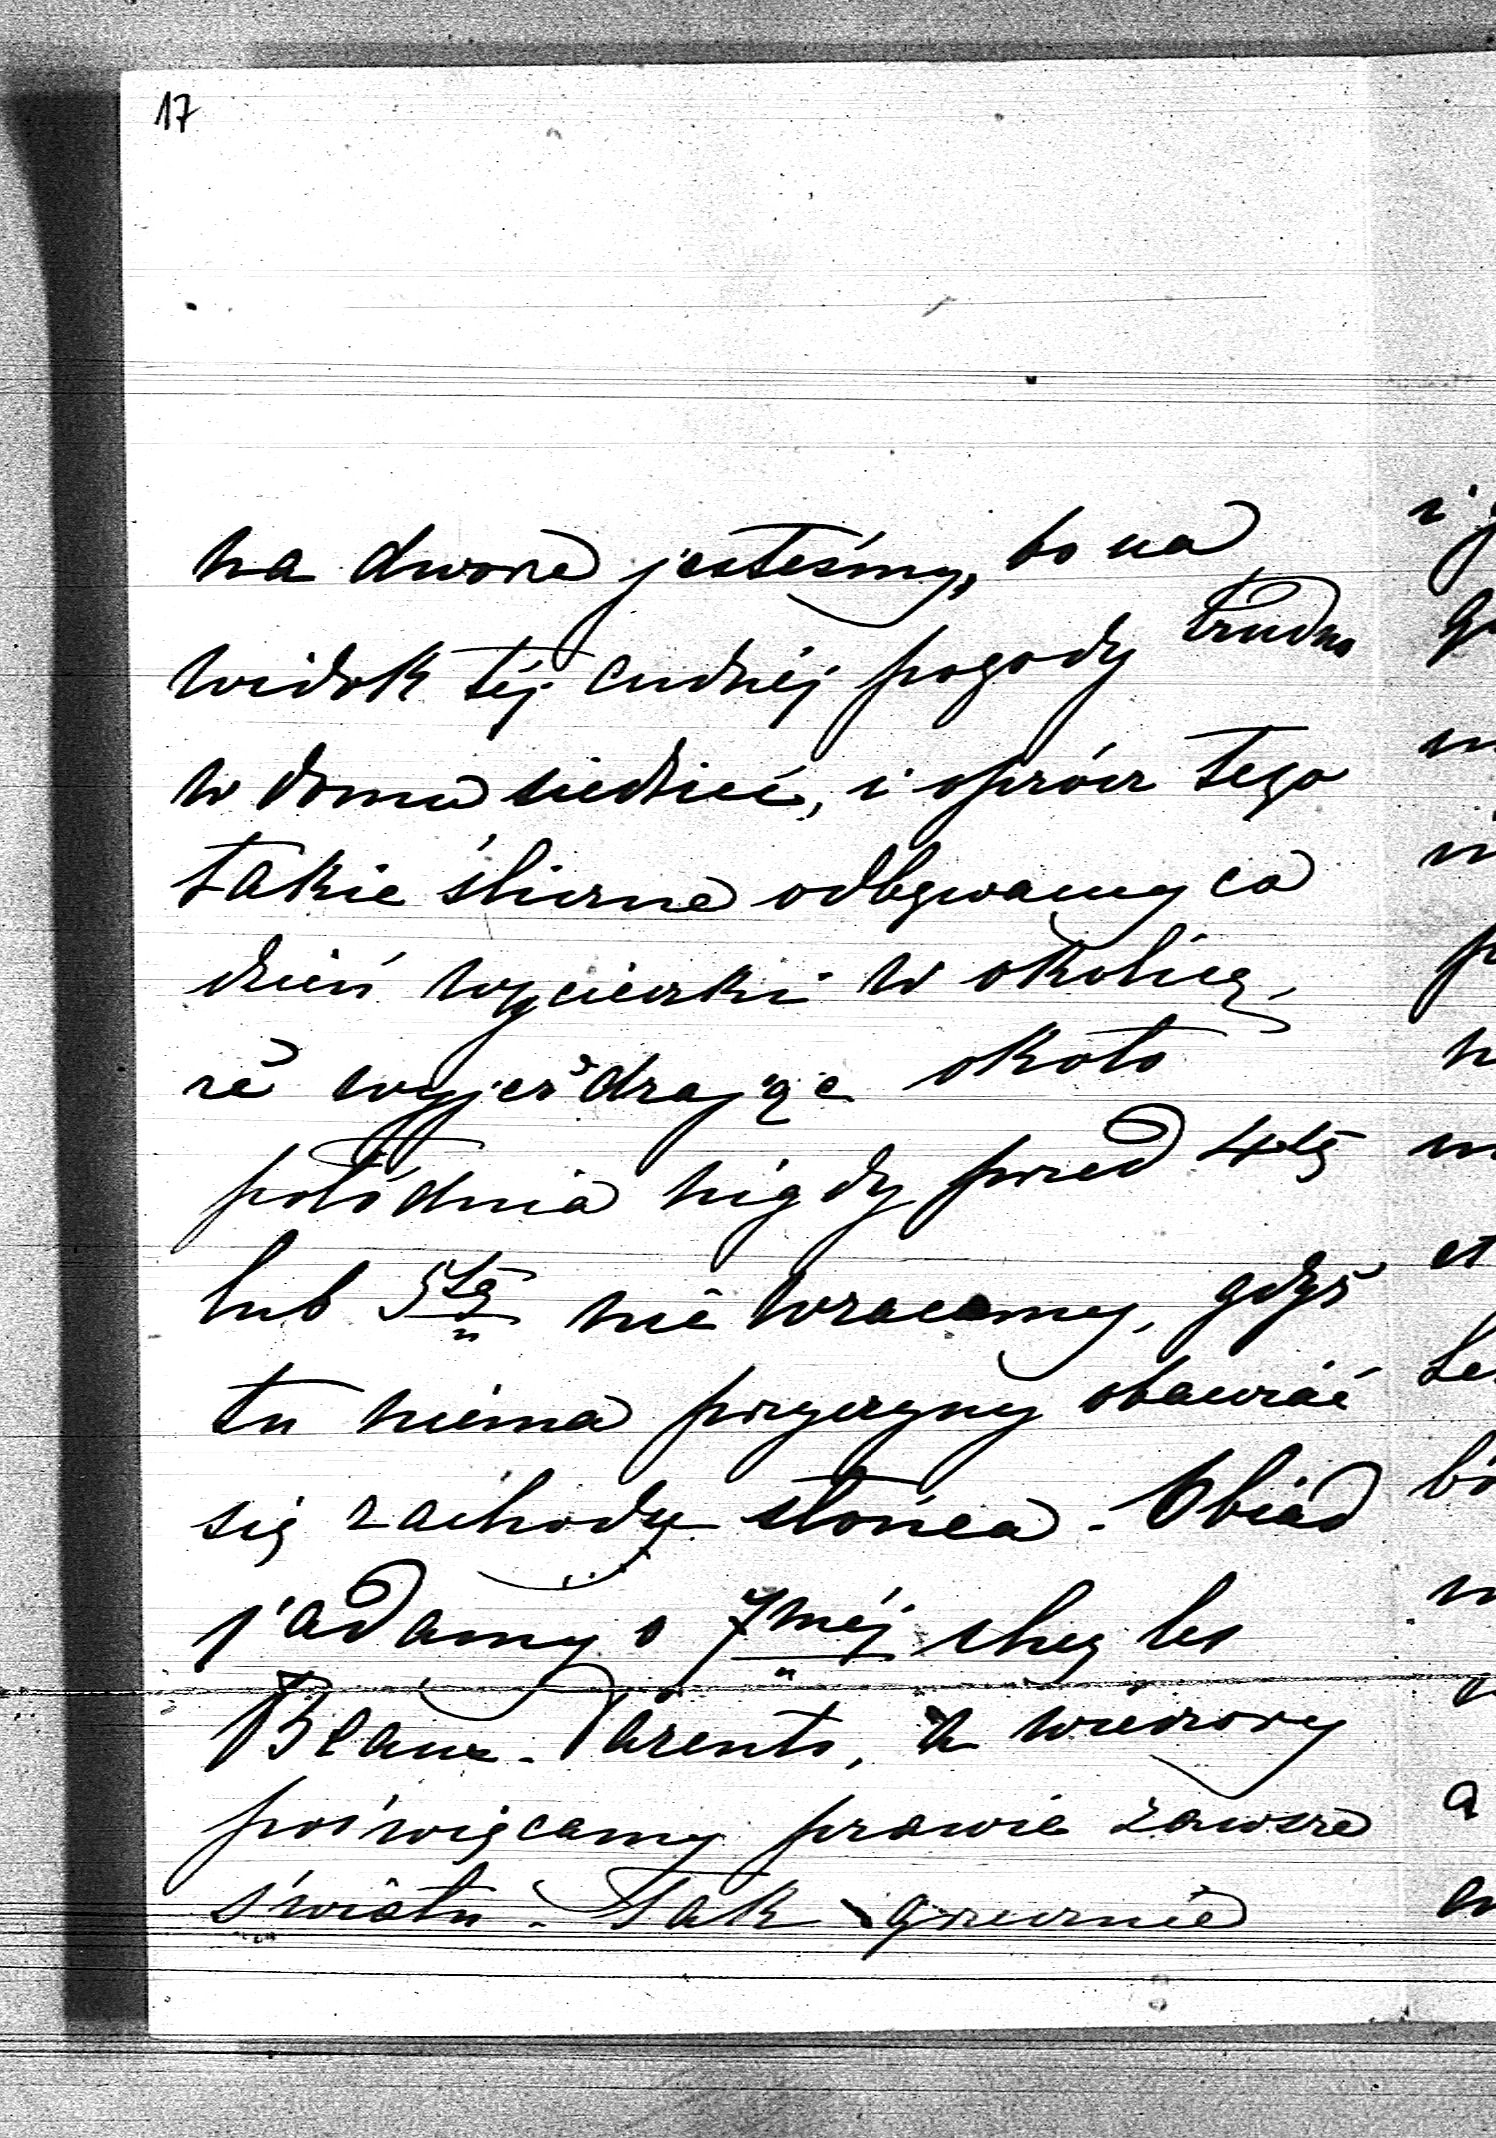 17
na dworze jesteśmy, bo na
widok téj cudnéj pogody trudno
w domu siedzieć, i oprócz tego
takie śliczne odbywamy co
dzień wycieczki w okolicę,
że wyjeżdzając około
połódnia nigdy przed 4tą
lub 5tą nie wracamy, gdyż
tu niema przyczyny obawiać
się zachodu słońca. Obiad
jadamy o 7méj chez les
Beaux-Parents, a wieczory
poświęcamy prawie zawsze
światu. Tak grzecznie